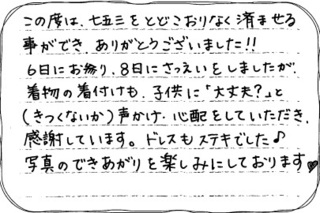 この度は、七五三をとどこおりなく済ませる
事ができ、ありがとうございました!!
6日にお参り、8日にさつえいをしましたが、
着物の着付けも、子供に「大丈夫?」と
(きつくないか)声かけ・心配をしていただき、
感謝しています。ドレスもステキでした♪
写真のできあがりを楽しみにしております♥